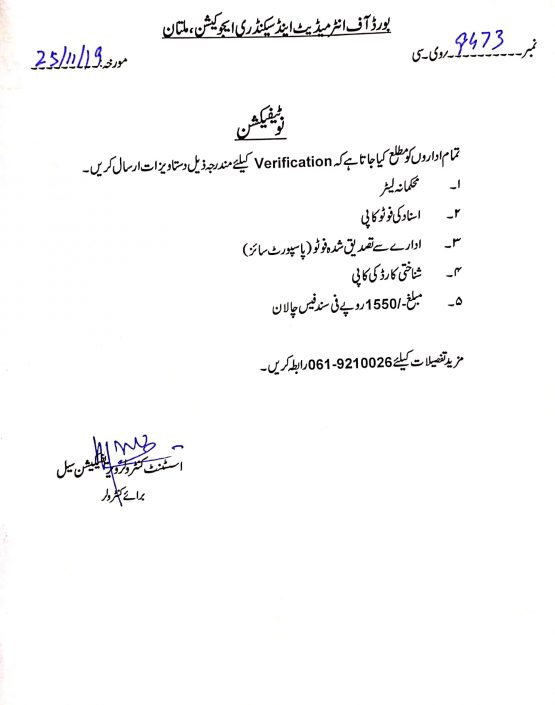 بورڈ آف انٹرمیڈیٹ اینڈ سیکنڈری ایجوکیشن، ملتان
نمبر 9473 /وی۔سی
مورخہ: 25/11/19
نوٹیفیکشن
تمام اداروں کو مطلع کیا جاتا ہے کہ Verification کیلئے مندرجہ ذیل دستاویزات ارسال کریں۔
۱۔ محکمانہ لیٹر
۲۔ اسناد کی فوٹو کاپی
۳۔ ادارے سے تصدیق شدہ فوٹو (پاسپورٹ سائز)
۴۔ شناختی کارڈ کی کاپی
۵۔ مبلغ -/1550 روپے فی سند فیس چالان
مزید تفصیلات کیلئے 061-9210026 رابطہ کریں۔
اسسٹنٹ کنٹرولر ویریفیکیشن سیل
برائے کنٹرولر